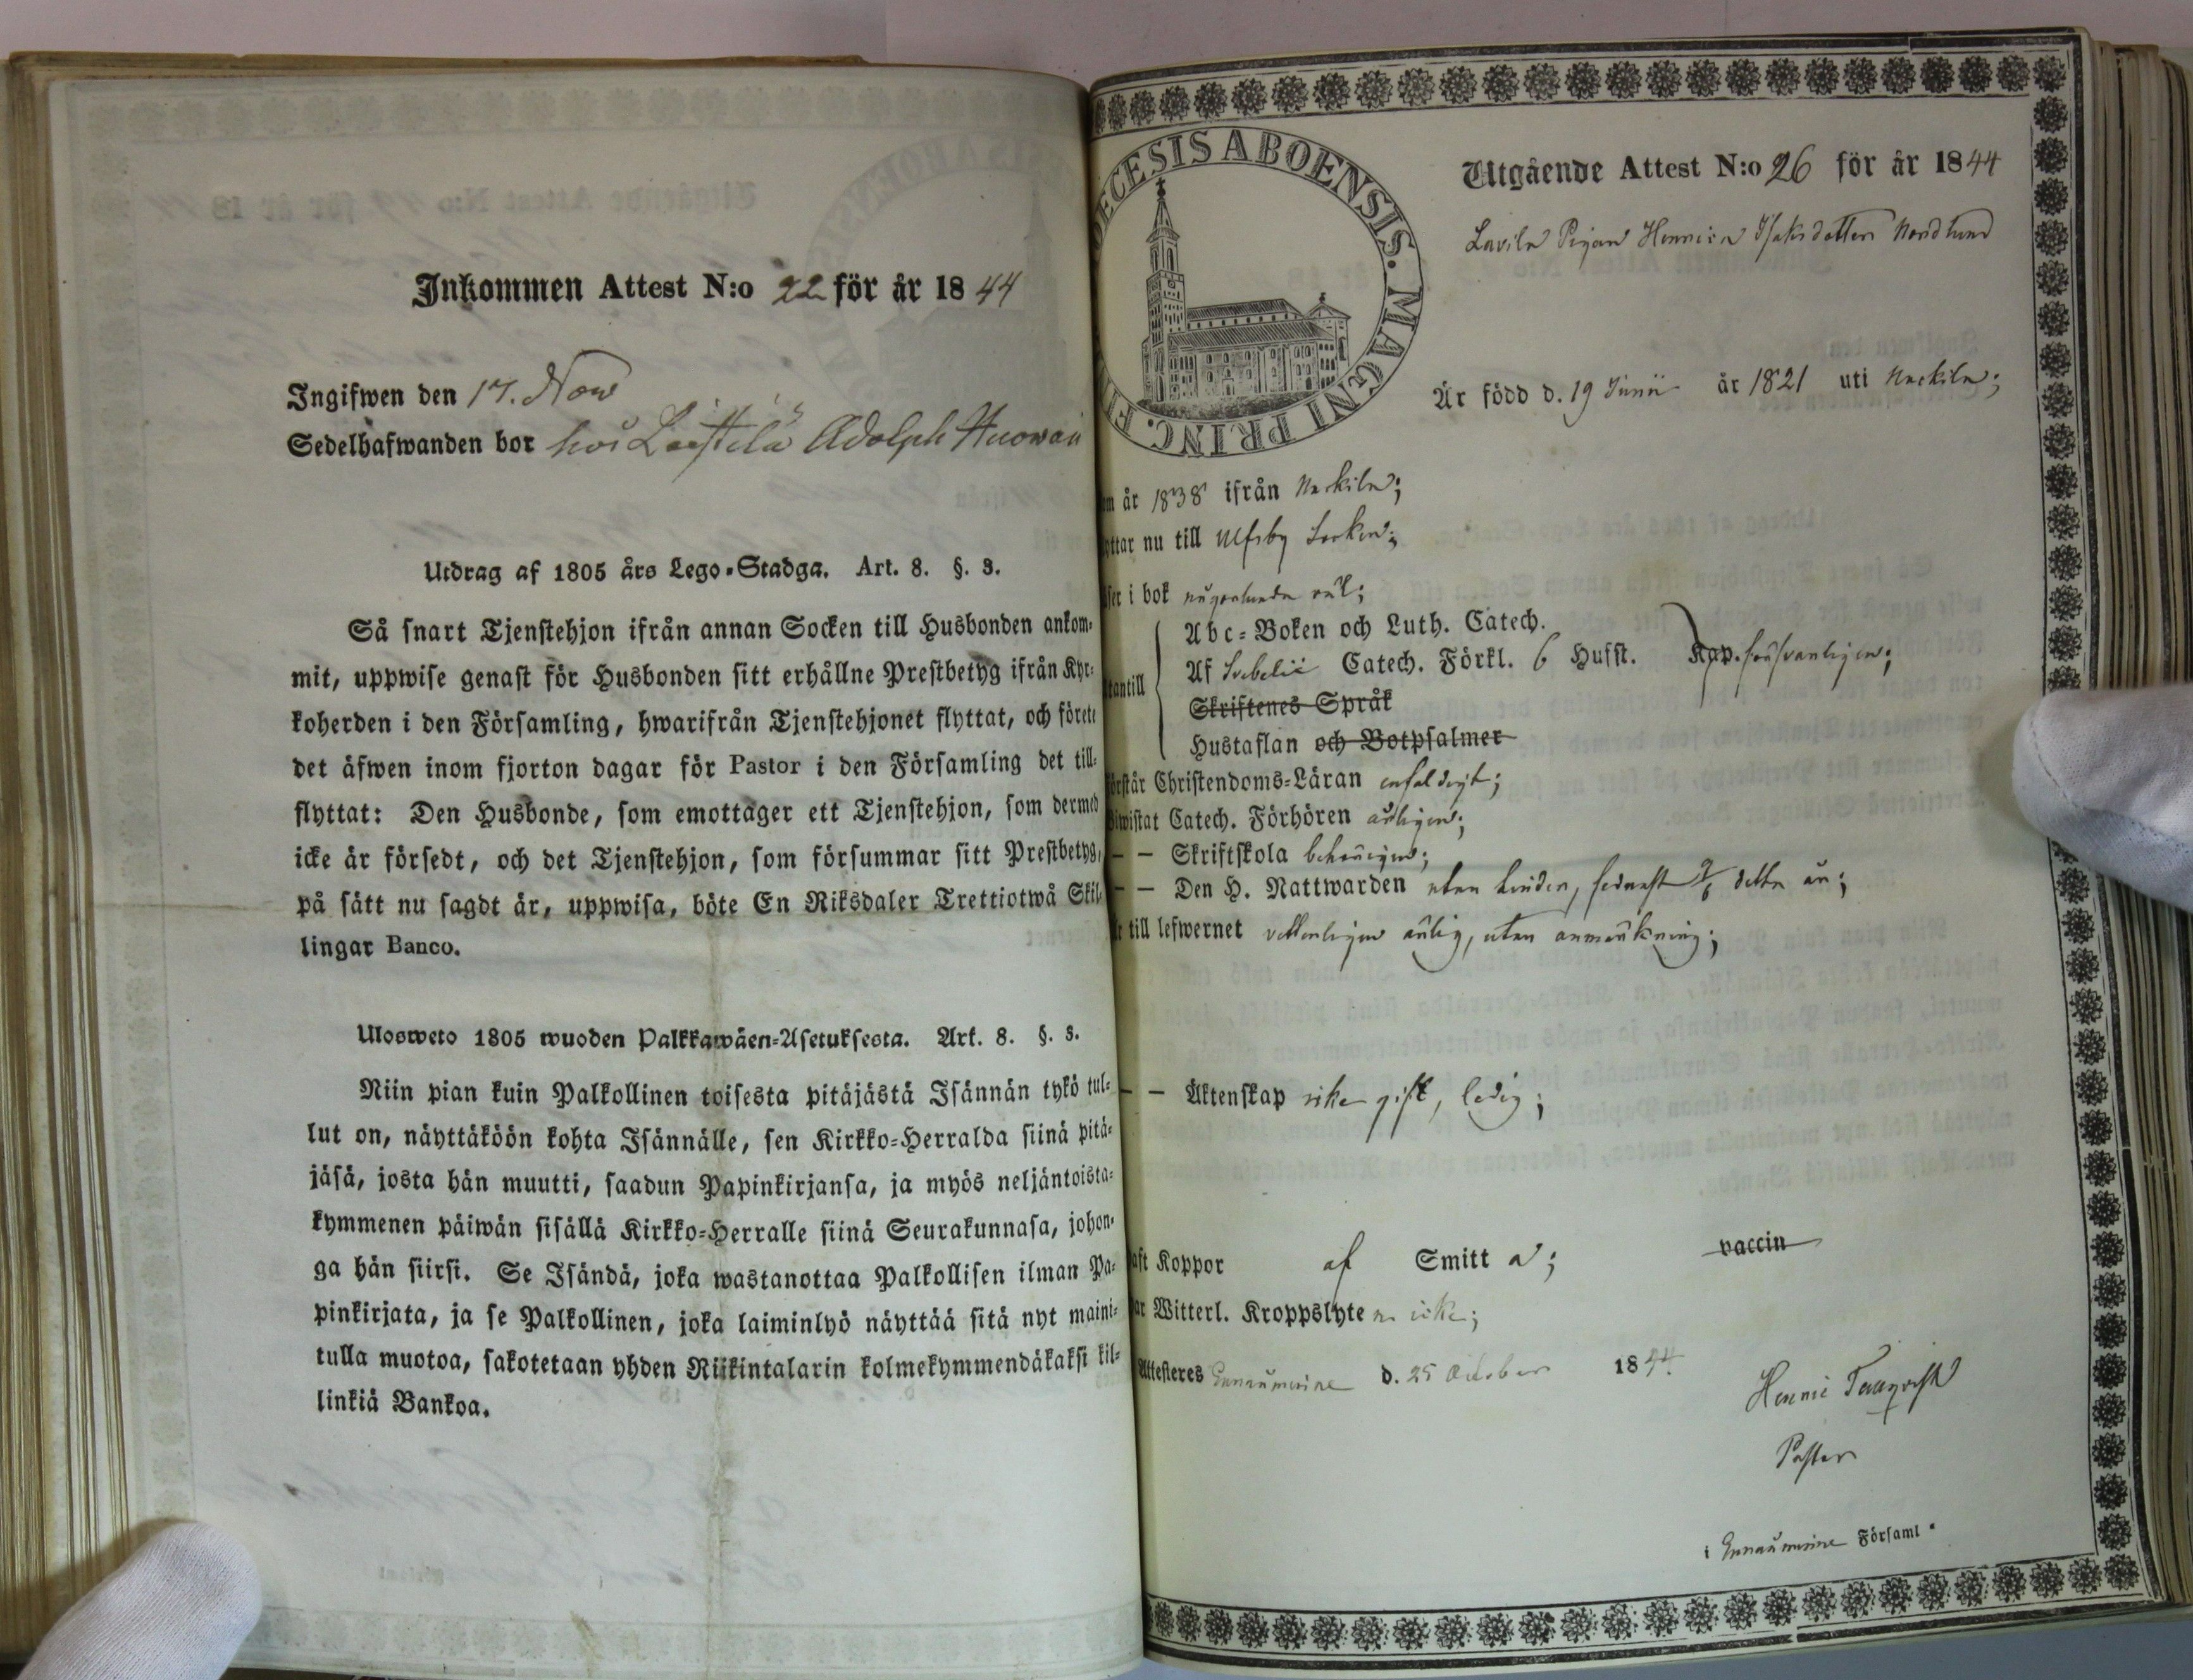 Inkommen Attest N:o 22 för år 1844
Ingifwen den 17. Nov
Sedelhafwanden bor hos Adolph
Utdrag af 1805 års Lego-Stadga. Art. 8. §. 3.
Så snart Tjenstehjon ifrån annan Socken till Husbonden ankom-
mit, uppwise genast för Husbonden sitt erhållne Prestbetyg ifrån Kyr-
koherden i den Församling, hwarifrån Tjenstehjonet flyttat, och förete
det äfwen inom fjorton dagar för Pastor i den Församling det till-
flyttat: Den Husbonde, som emottager ett Tjenstehjon, som dermed
icke är försedt, och det Tjenstehjon, som försummar sitt Prestbetyg,
på sätt nu sagdt är, uppwisa, böte En Riksdaler Trettiotwå Skil-
lingar Banco.
Ulosweto 1805 wuoden Palkkawäen-Asetuksesta. Art. 8. §. 3.
Niin pian kuin Palkollinen toisesta pitäjästä Isännän tykö tul-
lut on, näyttäköön kohta Isännälle, sen Kirkko-Herralda siinä pitä-
jäsä, josta hän muutti, saadun Papinkirjansa, ja myös neljäntoista-
kymmenen päiwän sisällä Kirkko-Herralle siinä Seurakunnasa, johon-
ga hän siirsi. Se Isändä, joka wastanottaa Palkollisen ilman Pa-
pinkirjata, ja se Palkollinen, joka laiminlyö näyttää sitä nyt maini-
tulla muotoa, sakotetaan yhden Riikintalarin kolmekymmendäkaksi kil-
linkiä Bankoa.
ECESIS ABOENSIS. MAGNI PRINC. FI
Utgående Attest N:o 26 för år 1844
Lavila Pigan Henrica Isaksdotter Nordlund
Är född d. 19 Junii år 1821 uti Nackila;
m år 1838 ifrån Nackila;
yttar nu till Ulfsby Socken;
ser i bok någorlunda väl;
tantill
Abc-Boken och Luth. Catech.
Af Svebelii Catech. Förkl. 6 Hufst. Kap. försvarligen;
Skriftenes Språk
Hustaflan och Botpsalmer
örstår Christendoms-Läran enfaldigt;
iwistat Catech. Förhören årligen;
– – Skriftskola behörigen;
– – Den H. Nattwarden utan hinder, sednast detta år;
r till lefwernet vetterligen ärlig, utan anmärkning;
– – Äktenskap icke gift, ledig;
aft Koppor af Smitt a; vaccin
ar Witterl. Kroppslyte n icke;
Attesteres Euraåminne d. 25 October 1844.
Henric
Pastor
i Euraåminne Församl.